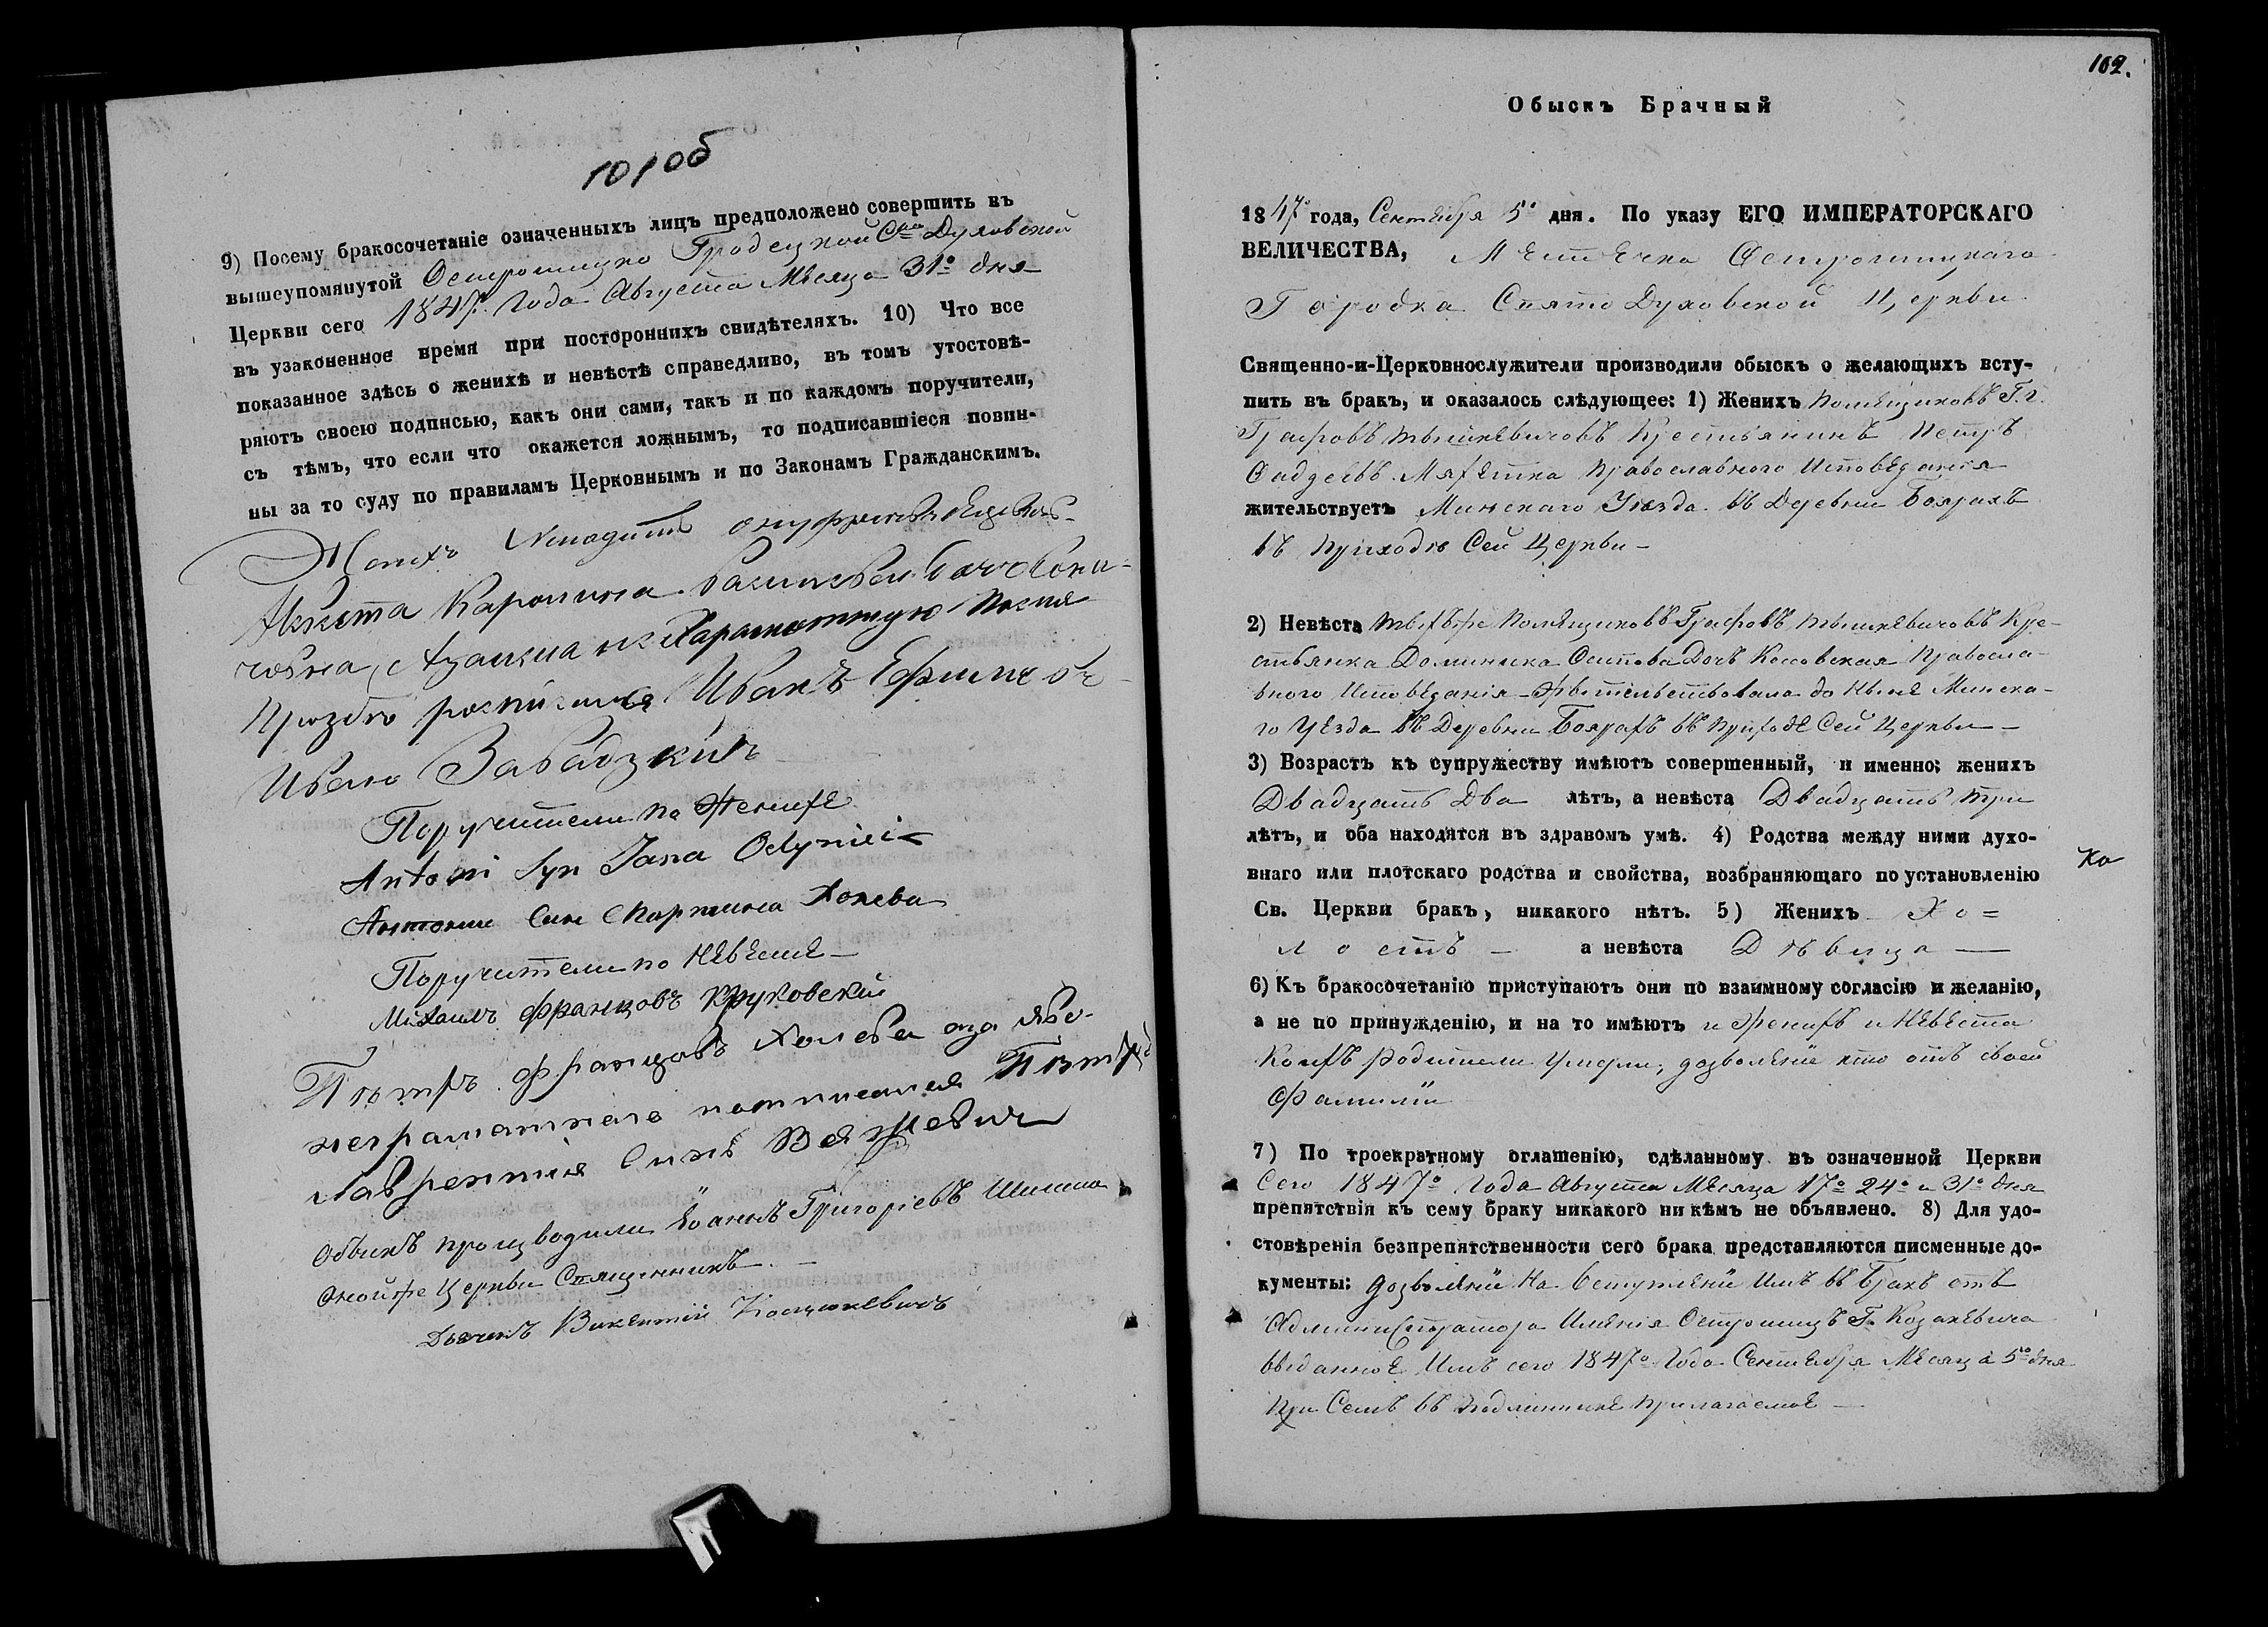 101об
9) Посему бракосочетаніе означенныхъ лицъ предположено совершить въ
вышеупомянутой Острошицко Градецкой Сто Духовской
Церкви сего 1847го Года Августа Мѣсяца 31о дня
въ узаконенное время при постороннихъ свидѣтеляхъ. 10) Что все
показанное здѣсь о женихѣ и невѣстѣ справедливо, въ томъ утостовѣ-
ряютъ своею подписью, какъ они сами, такъ и по каждомъ поручители,
съ тѣмъ, что если что окажется ложнымъ, то подписавшіеся повин-
ны за то суду по правиламъ Церковнымъ и по Законамъ Гражданскимъ.
Женихъ
Невѣста Каролина
Прозбѣ Иванъ
Ивано Завадзкій
Поручители по Женихе
Antoni Syn Jana Odyniec
Антони Син Мартина Холева
Поручители по Невесте
Михаилъ Францовъ Круковскій
Пѣтръ Францовъ Холева за
неграматнаго Пѣтръ
Лаврентия Синъ
Обыскъ производили Іоаннъ Григоріевъ
Онойже Церкви Священникъ.
Дьячекъ Викентій
102.
Обыскъ Брачный
1847о года, Сентебря 5о дня. По указу ЕГО ИМПЕРАТОРСКАГО
ВЕЛИЧЕСТВА, Местечка Острошицкаго
Городка Свято Духовской Церкви
Священно-и-Церковнослужители производили обыскъ о желающихъ всту-
пить въ бракъ, и оказалось слѣдующее: 1) Женихъ Помещиковъ Г. г.
Графовъ Тышкевичовъ Крестьянинъ Петръ
Фадеевъ Православного Исповеданія
жительствуетъ Минскаго Уезда въ Деревни Боярахъ
въ приходѣ Сей Церкви —
2) Невѣста Техъже Помещиковъ Графовъ Тышкевичовъ Кре-
стьянка Доминика Осипова Дочъ Косовская Правосла-
вного Исповеданія Жительствовала до Ныне Минска-
го Уезда въ Деревни Боярахъ въ Приходе Сей Церкви —
3) Возрастъ къ супружеству имѣютъ совершенный, и именно: женихъ
Двадцать Два лѣтъ, а невѣста Двадцать три
лѣтъ, и оба находятся въ здравомъ умѣ. 4) Родства между ними духо-
внаго или плотскаго родства и свойства, возбраняющаго по установленію
Ко
Св. Церкви бракъ, никакого нѣтъ. 5) Женихъ Хо=
лостъ — а невѣста Дѣвица —
6) Къ бракосочетанію приступаютъ они по взаимному согласію и желанію,
а не по принужденію, и на то имѣютъ и Женихъ и Невеста
Коихъ Родители Умерли, дозволеніе кто отъ своей
Фамиліи
7) По троекратному оглашенію, сдѣланному въ означенной Церкви
Сего 1847о Года Августа Месяца 17о 24о и 31о дня
препятствія къ сему браку никакого ни кѣмъ не объявлено. 8) Для удо-
стовѣренія безпрепятственности сего брака представляются писменные до-
кументы: дозволеніи На Вступленіи Имъ въ Бракъ отъ
Администратора Именія Острошицъ Г. Козакевича
выданное Имъ сего 1847о Года Сентебря Месяца 5о дня
При Семъ въ подлиннике прилагаемое —